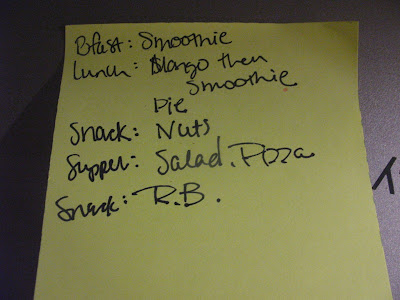 Bfast: Smoothie
Lunch: Mango then
Smoothie
Pie
Snack: Nuts
Supper: Salad. Pizza
Snack: R.B.